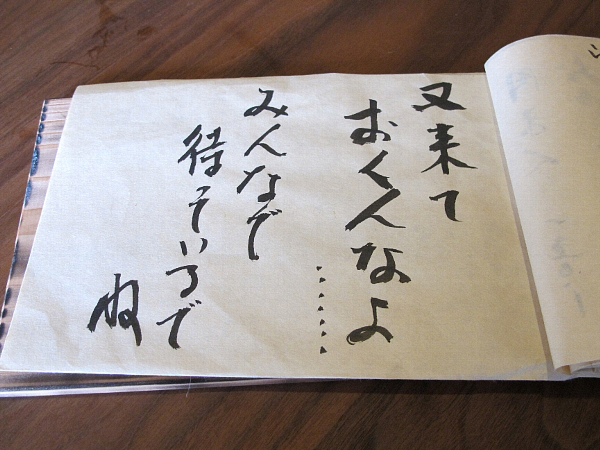 又来て
おくんなよ
・・・・・・・
みんなで
待っているで
ね